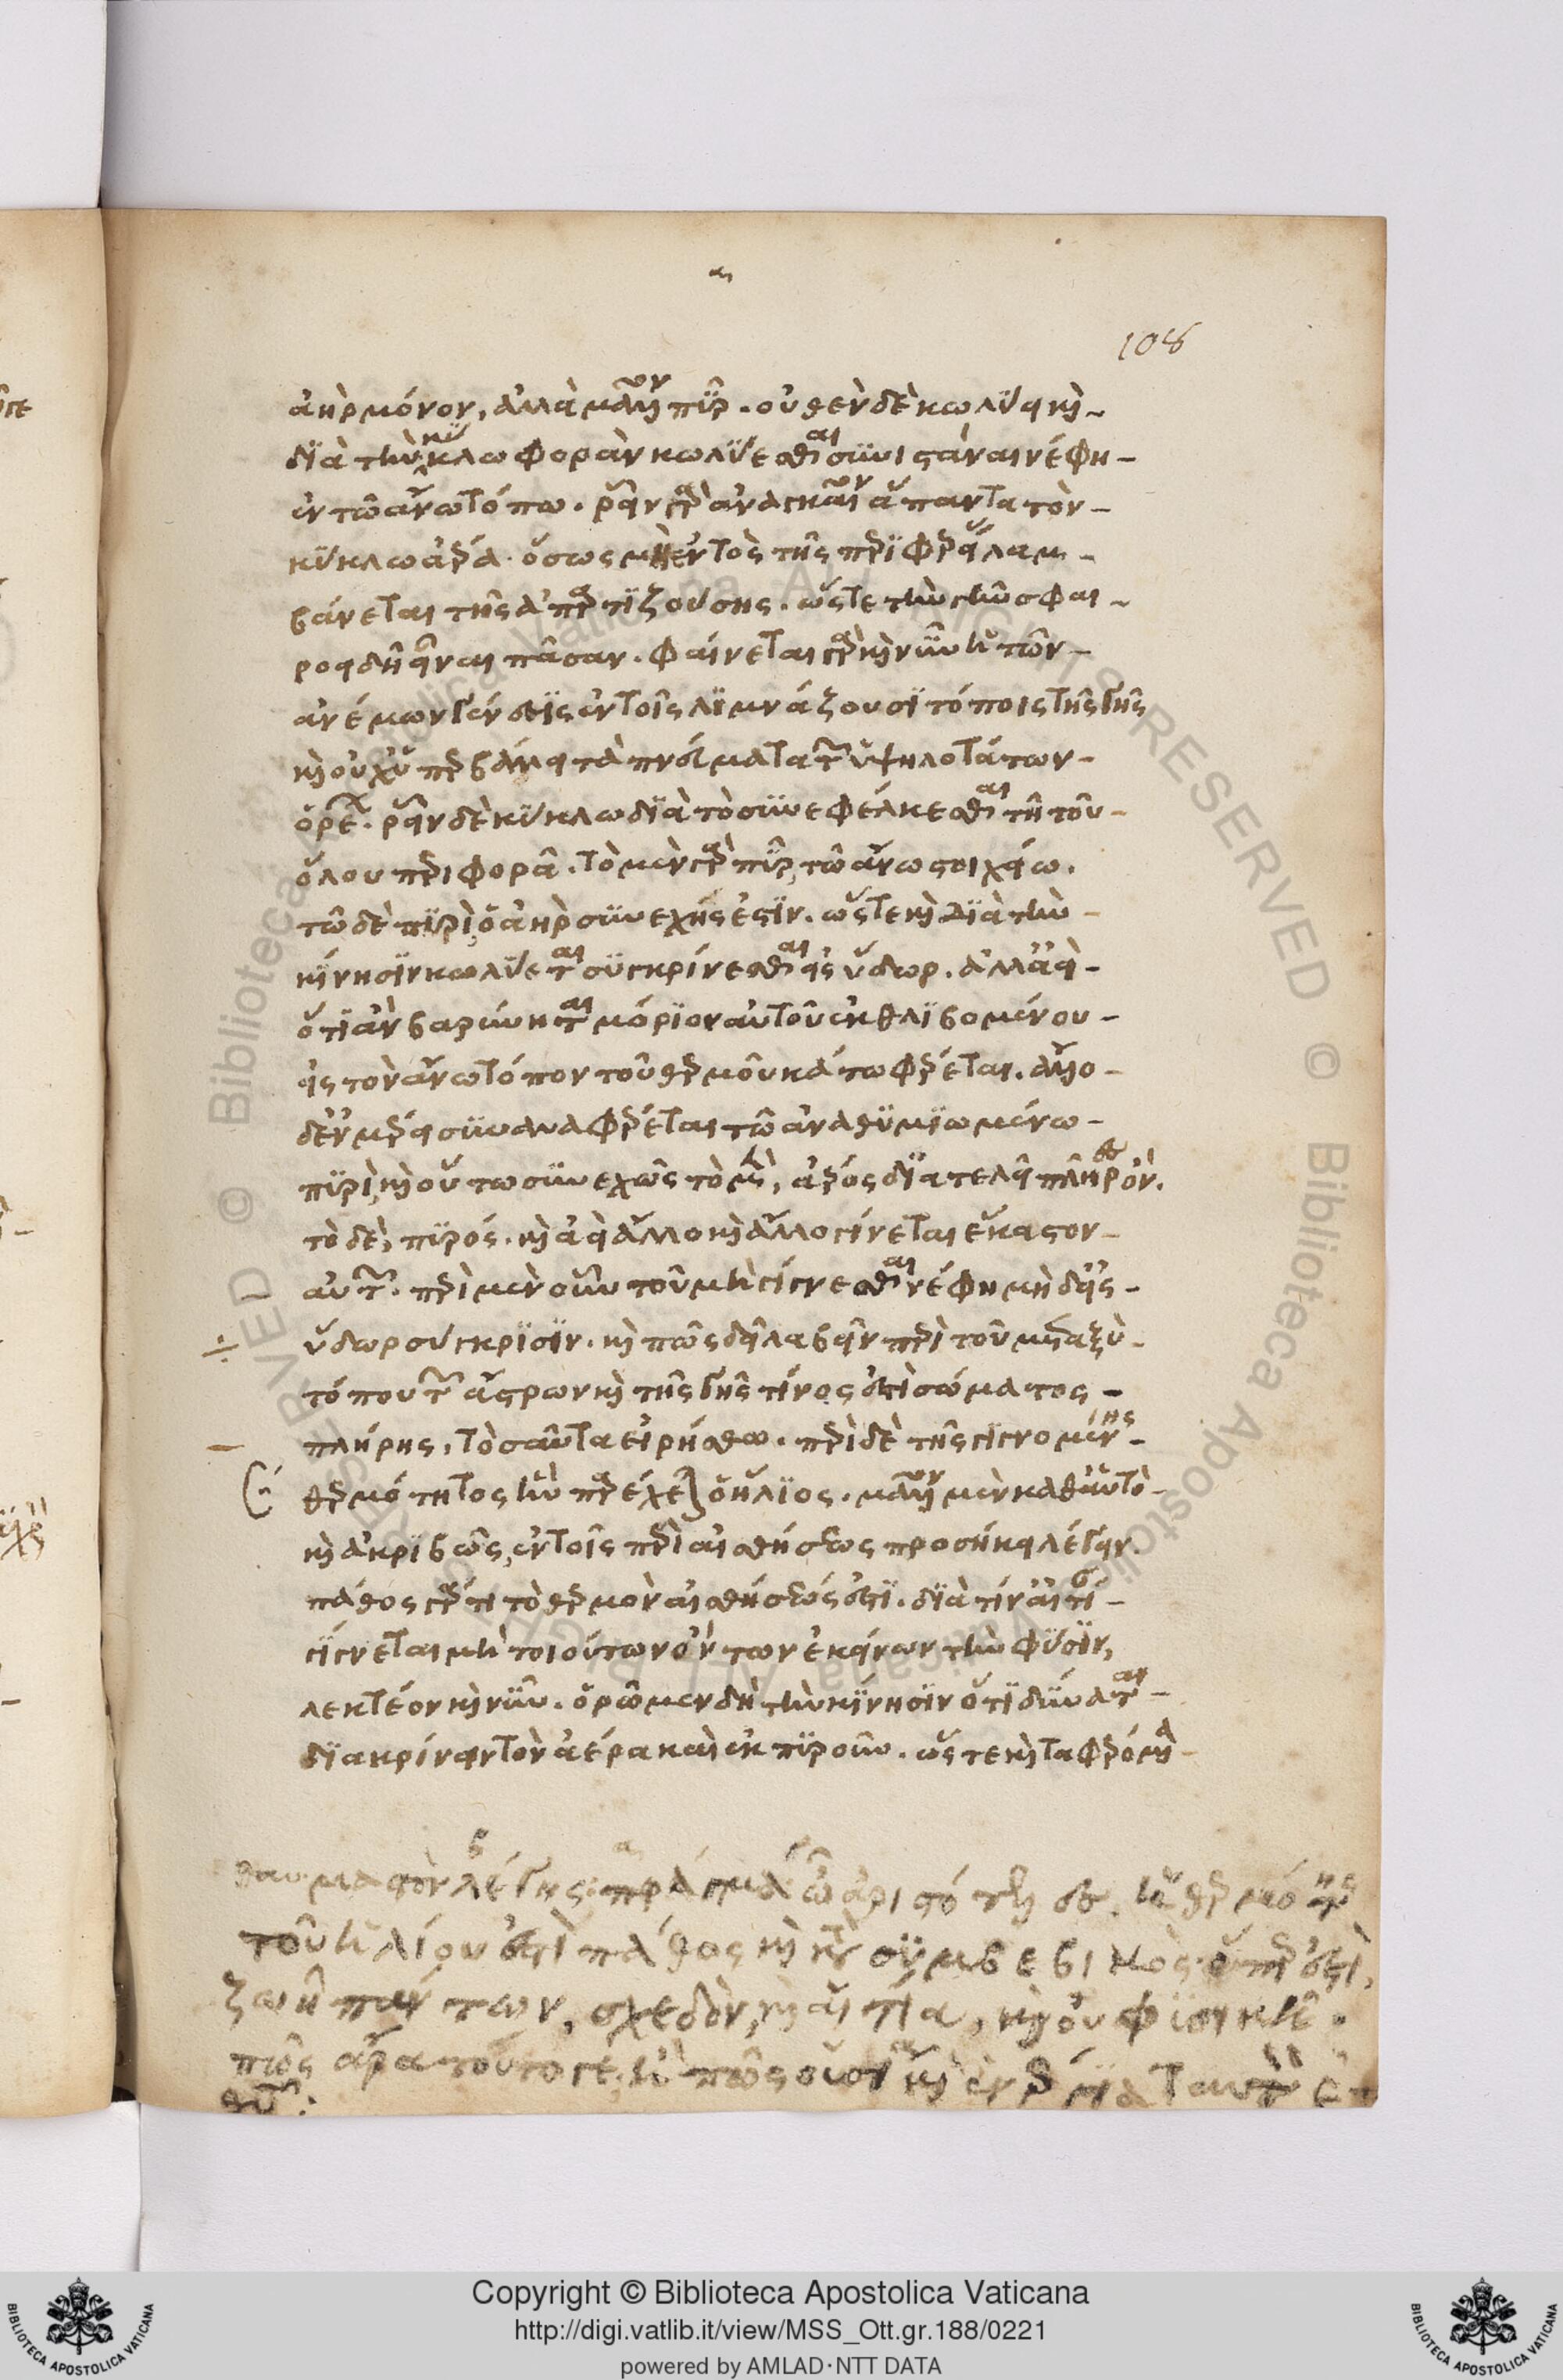 108
ἀὴρ μόνον, ἀλλὰ μᾶλλον πῦρ. οὐθὲν δὲ κωλύει καὶ
διὰ τὴν κύκλω φορὰν κωλύεσθαι συνίστασθαι νέφη
ἐν τῶ ἀνωτόπω. ῥεῖν γὰρ ἀναγκαῖον ἅπαντα τὸν
κύκλω ἀέρα. ὅσως μὴ ἐντὸς τῆς περιφερείας λαμ
βάνεται τῆς ἀπαρτιζούσης. ὥστε τὴν γῆν σφαι
ροειδῆ εἶναι πᾶσαν. φαίνεται γὰρ καὶ νῦν ἡ τῶν
ἀνέμων γένεσις ἐν τοῖς λιμνάζουσι τόποις τῆς γῆς
καὶ οὐχ ὑπερβάλλει τὰ πνεύματα τῶν ὑψηλοτάτων
ὀρέων. ῥεῖν δὲ κύκλω διὰ τὸ συνεφέλκεσθαι τῆ τοῦ
ὅλου περιφορᾶ. τὸ μὲν γὰρ πῦρ, τῶ ἄνω στοιχείω.
τῶ δὲ πυρὶ, ὁ ἀὴρ συνεχής ἐστιν. ὥστε καὶ διὰ τὴν
κίνησιν κωλύεται συγκρίνεσθαι εἰς ὕδωρ. ἀλλ' ἀεὶ
ὅτι ἂν βαρύνηται μόριον αὐτοῦ ἐκθλιβομένου
εἰς τὸν ἄνω τόπον τοῦ θερμοῦ κάτω φέρεται. ἄλλο
δ' ἐν μέρει συναναφέρεται τῶ ἀναθυμιωμένω
πυρὶ, καὶ οὕτω συνεχῶς τὸ μὲν, ἀέρος διατελεῖ πλῆρες ὄν.
τὸ δὲ, πυρός. καὶ ἀεὶ ἄλλο καὶ ἄλλο γίνεται ἕκαστον
αὐτῶν. περὶ μὲν οὖν τοῦ μὴ γίγνεσθαι νέφη μηδ' εἰς
ὕδωρ σύγκρισιν. καὶ πῶς δεῖ λαβεῖν περὶ τοῦ μεταξὺ
τόπου τῶν ἄστρων καὶ τῆς γῆς τίνος ἐστὶ σώματος
πλήρης, τοσαῦτα εἰρήσθω. περὶ δὲ τῆς γιγνομένης
θερμότητος ἣν παρέχεται ὁ ἥλιος. μᾶλλον μὲν καθ' αὑτὸ
καὶ ἀκριβῶς, ἐν τοῖς περὶ αἰσθήσεως προσήκει λέγειν.
πάθος γάρ τι τὸ θερμὸν αἰσθήσεώς ἐστι. διὰ τίν' αἰτίαν
γίγνεται μὴ τοιούτων ὄντων ἐκείνων τὴν φύσιν,
λεκτέον καὶ νῦν. ὁρῶμεν δὴ τὴν κίνησιν ὅτι δύναται
διακρίνειν τὸν ἀέρα καὶ ἐκπυροῦν. ὥστε καὶ τὰ φερόμενα
θαυμαστὸν λέγεις πρᾶγμα ὦ ἀριστότελες
τοῦ ἡλίου ἐστὶ πάθος καὶ κατὰ συμβεβηκὸς
ζωὴ πάντων, σχεδὸν, καὶ αἰτία, καὶ οὐ φυσικὴ.
πῶς ἄρα τοῦτο